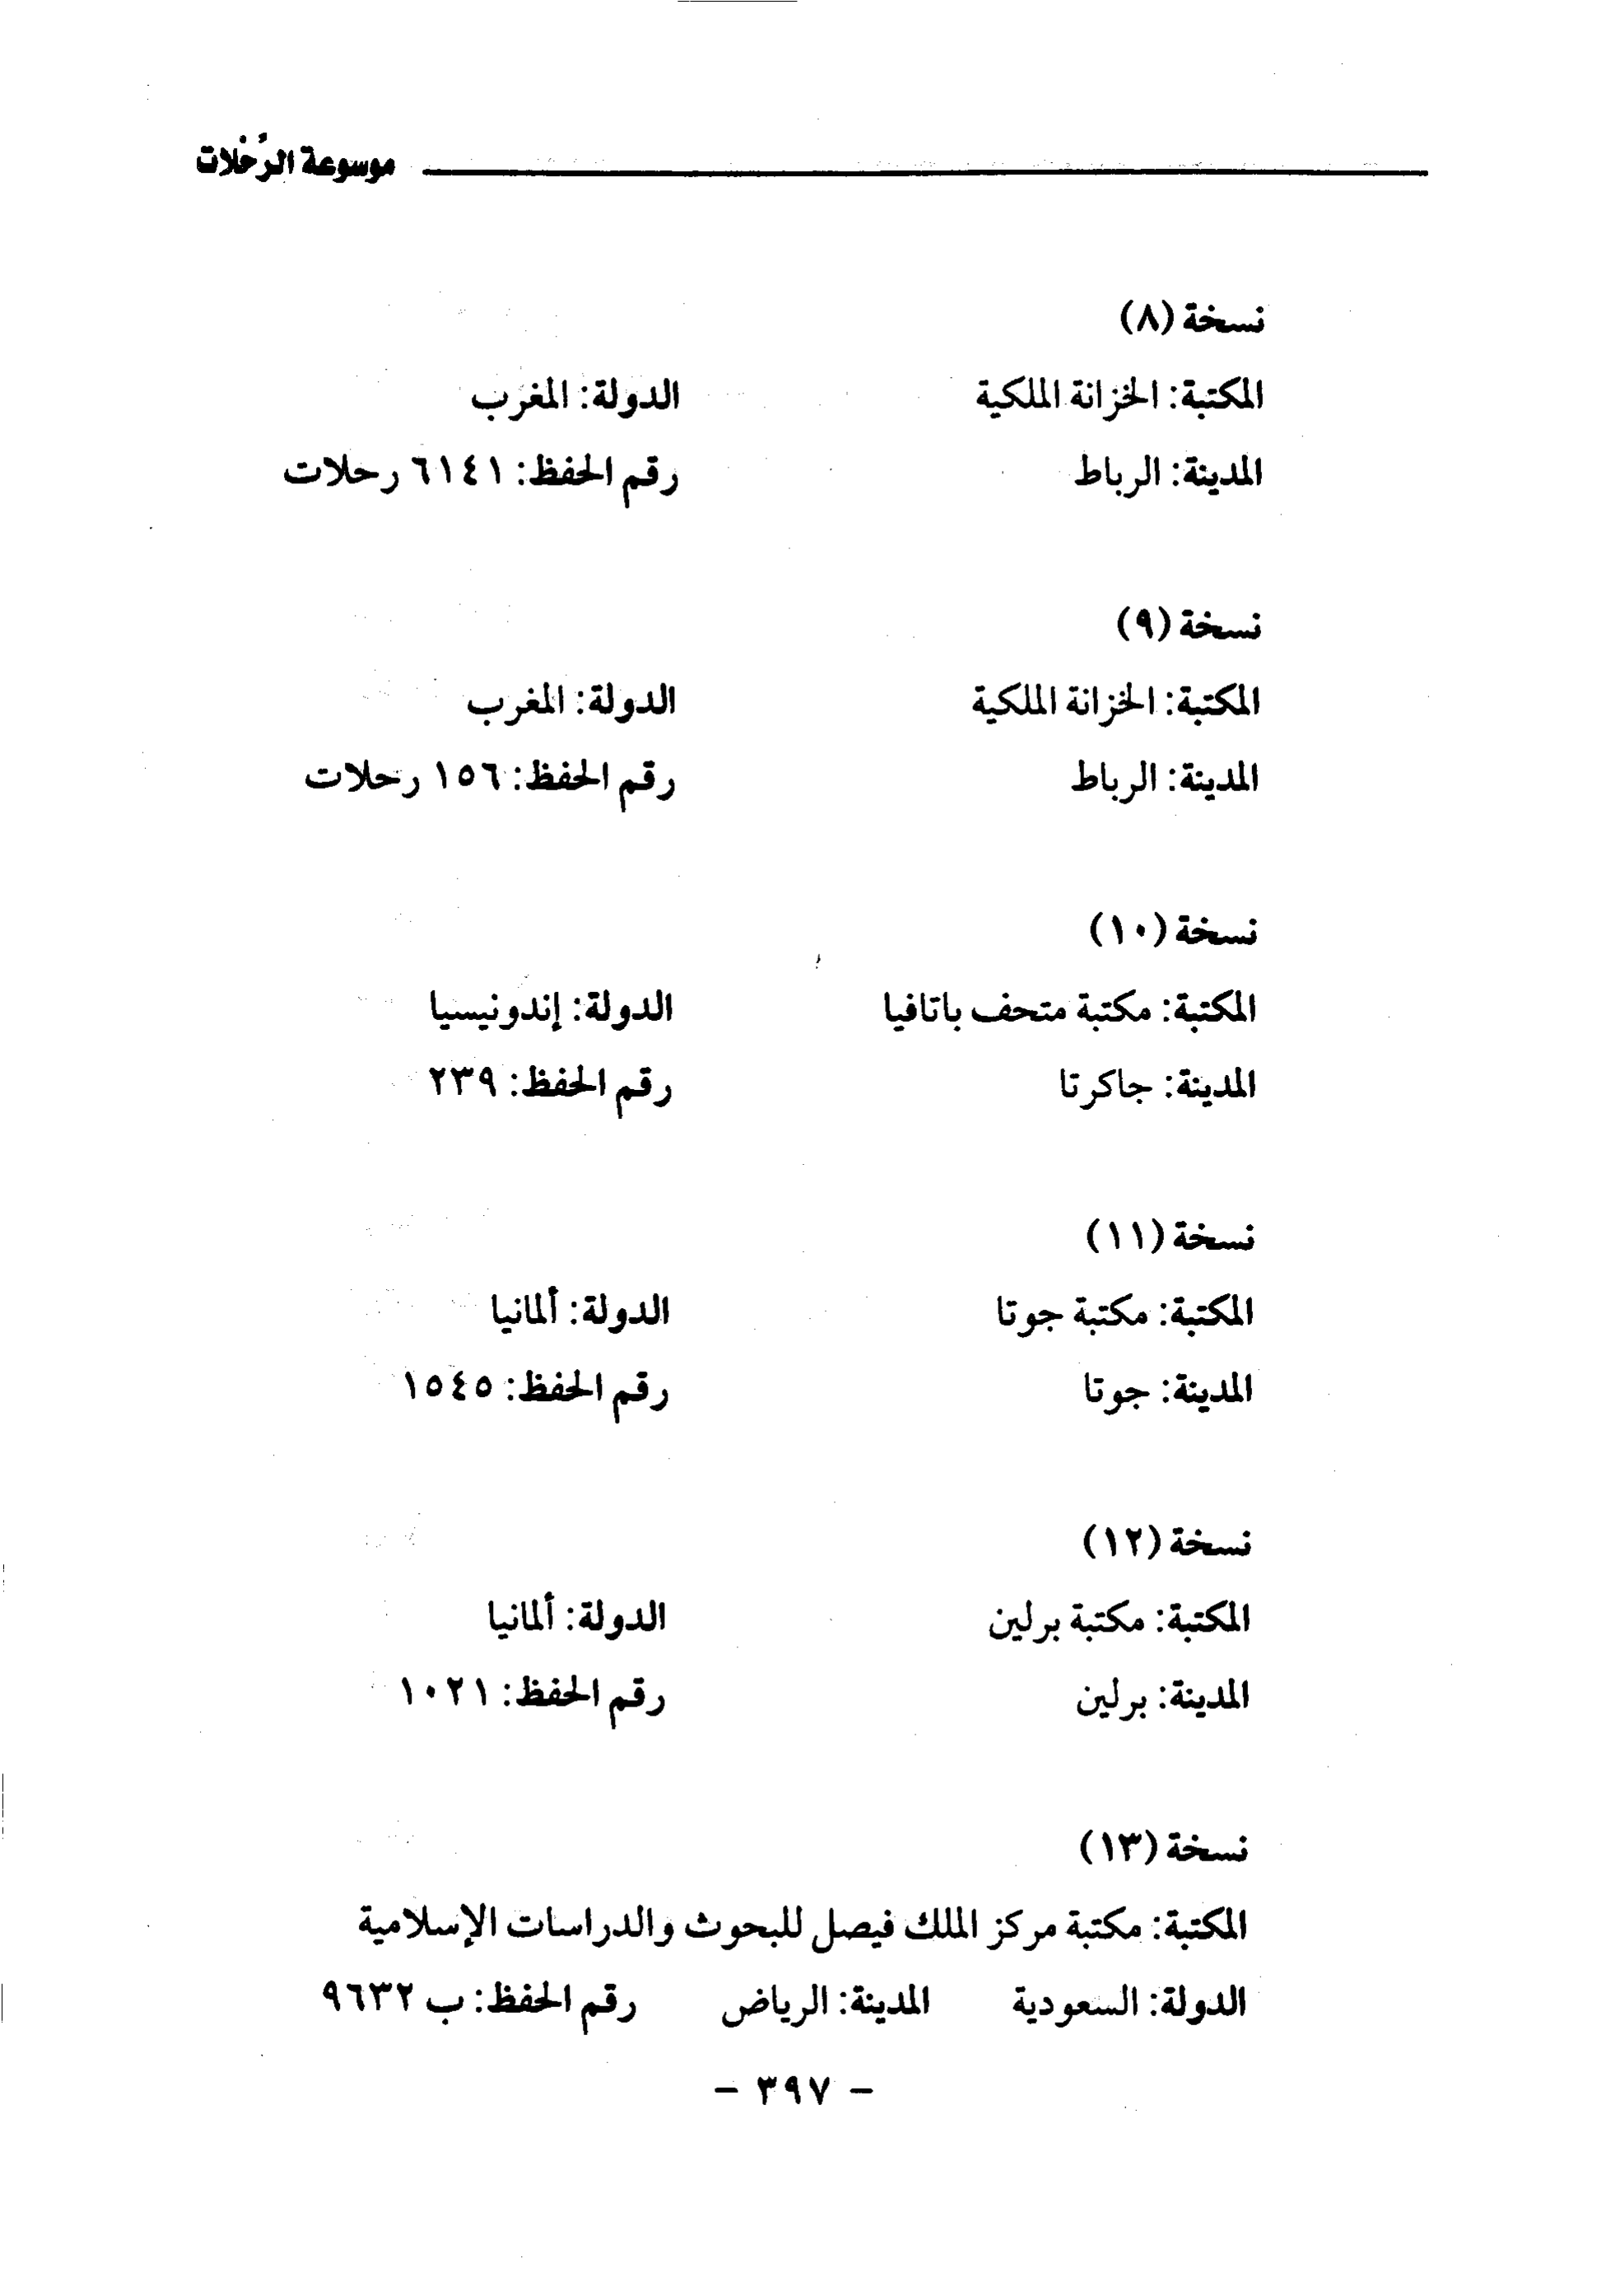 موسوعة الرِّحْلات
نسخة (٨)
المكتبة: الخزانة الملكية الدولة: المغرب
المدينة: الرباط رقم الحفظ: ٦١٤١ رحلات
نسخة (٩)
المكتبة: الخزانة الملكية الدولة: المغرب
المدينة: الرباط رقم الحفظ: ١٥٦ رحلات
نسخة (١٠)
المكتبة: مكتبة متحف باتافيا الدولة: إندونيسيا
المدينة: جاكرتا رقم الحفظ: ٢٣٩
نسخة (١١)
المكتبة: مكتبة جوتا الدولة: ألمانيا
المدينة: جوتا رقم الحفظ: ١٥٤٥
نسخة (١٢)
المكتبة: مكتبة برلين الدولة: ألمانيا
المدينة: برلين رقم الحفظ: ١٠٢١
نسخة (١٣)
المكتبة: مكتبة مركز الملك فيصل للبحوث والدراسات الإسلامية
الدولة: السعودية المدينة: الرياض رقم الحفظ: ب ٩٦٣٢
- ٣٩٧ -